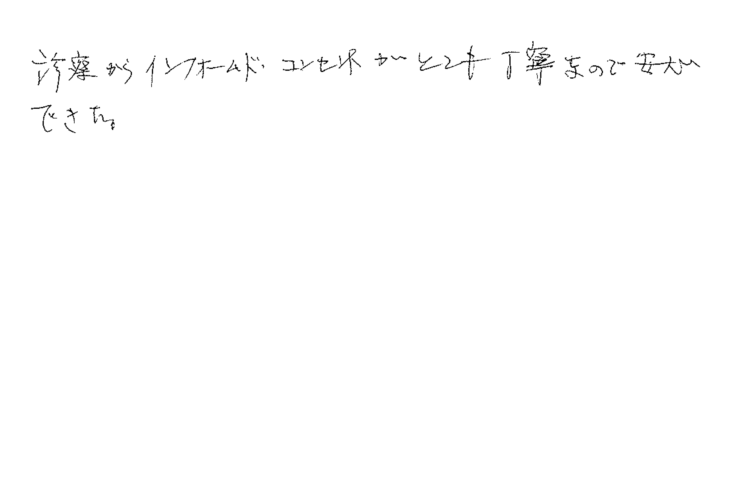 診察からインフォームド・コンセントがとても丁寧なので安心
できた。